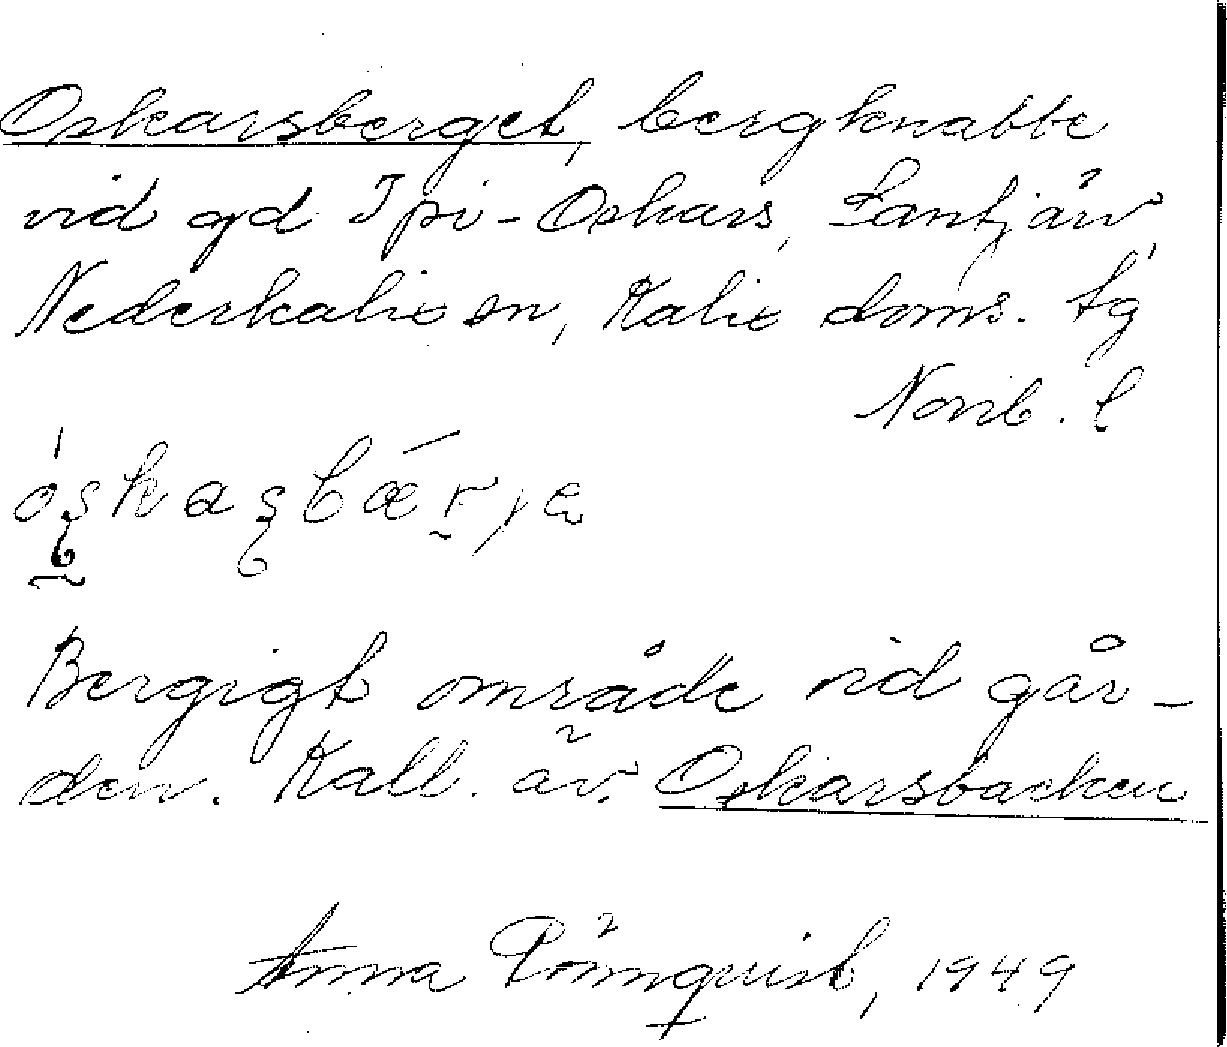 Oskarsberget, bergknabbe
vid gd Ipi-Oskars, Lantjärv,
Nederkalix sn, Kalix doms. tg
Norrb. l
Bergigt område vid går-
den. Kall. äv. Oskarsbacken
Anna Rönnquist, 1949